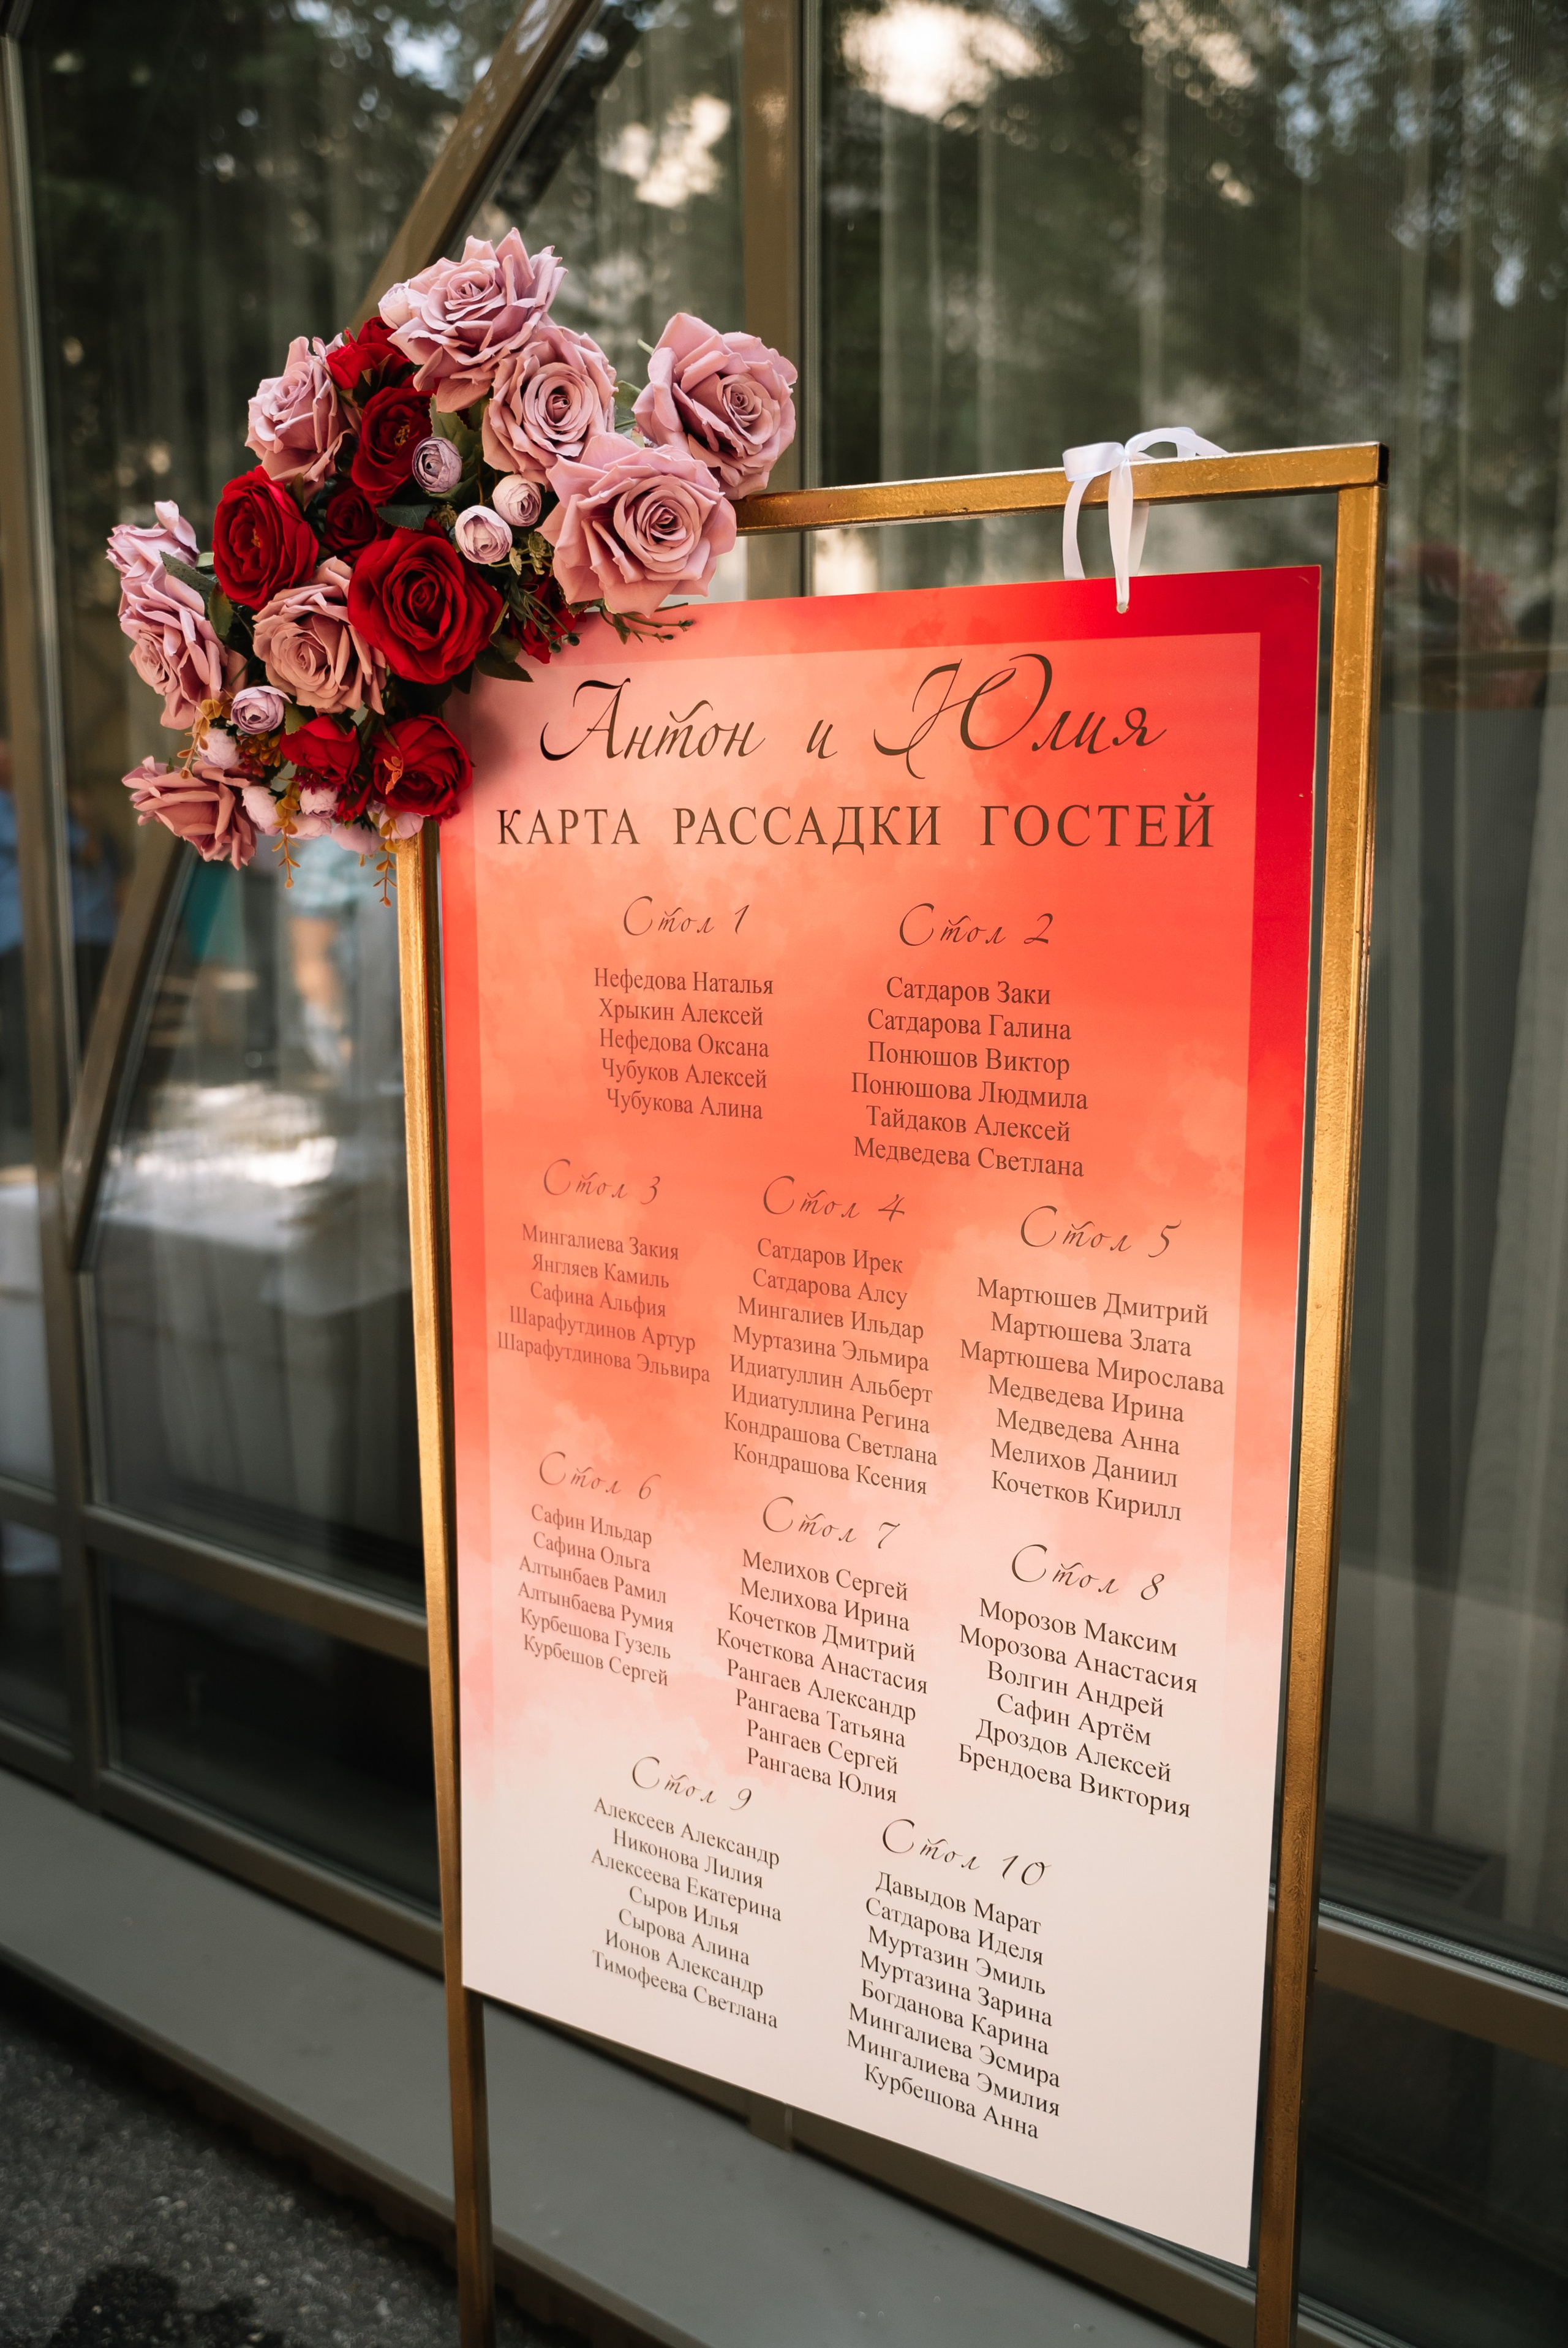 Антон и Юлия
КАРТА РАССАДКИ ГОСТЕЙ
Стол 1
Нефедова Наталья
Хрыкин Алексей
Нефедова Оксана
Чубуков Алексей
Чубукова Алина
Стол 2
Сатдаров Заки
Сатдарова Галина
Понюшов Виктор
Понюшова Людмила
Тайдаков Алексей
Медведева Светлана
Стол 3
Мингалиева Закия
Янгляев Камиль
Сафина Альфия
Шарафутдинов Артур
Шарафутдинова Эльвира
Стол 4
Сатдаров Ирек
Сатдарова Алсу
Мингалиев Ильдар
Муртазина Эльмира
Идиатуллин Альберт
Идиатуллина Регина
Кондрашова Светлана
Кондрашова Ксения
Стол 5
Мартюшев Дмитрий
Мартюшева Злата
Мартюшева Мирослава
Медведева Ирина
Медведева Анна
Мелихов Даниил
Кочетков Кирилл
Стол 6
Сафин Ильдар
Сафина Ольга
Алтынбаев Рамил
Алтынбаева Румия
Курбешова Гузель
Курбешов Сергей
Стол 7
Мелихов Сергей
Мелихова Ирина
Кочетков Дмитрий
Кочеткова Анастасия
Рангаев Александр
Рангаева Татьяна
Рангаев Сергей
Рангаева Юлия
Стол 8
Морозов Максим
Морозова Анастасия
Волгин Андрей
Сафин Артём
Дроздов Алексей
Брендоева Виктория
Стол 9
Алексеев Александр
Никонова Лилия
Алексеева Екатерина
Сыров Илья
Сырова Алина
Ионов Александр
Тимофеева Светлана
Стол 10
Давыдов Марат
Сатдарова Иделя
Муртазин Эмиль
Муртазина Зарина
Богданова Карина
Мингалиева Эсмира
Мингалиева Эмилия
Курбешова Анна